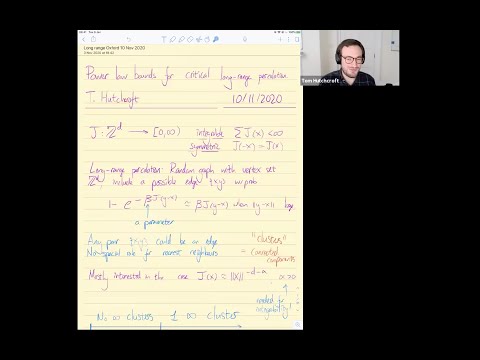 Long range Oxford 10 Nov 2020
Power law bounds for critical long-range percolation
T. Hutchcroft 10/11/2020
J : ℤ^d → [0,∞) integrable ΣJ(x) < ∞
symmetric J(-x) = J(x)
Long-range percolation: Random graph with vertex set
ℤ^d, include a possible edge {x,y} w/ prob
1 - e^{-βJ(y-x)} ≈ βJ(y-x) when ||y-x|| large
a parameter
Any pair {x,y} could be an edge
No special role for nearest neighbours
"clusters"
= connected components
Mostly interested in the case J(x) ≈ ||x||^{-d-α} α>0
needed for integrability!
No ∞ clusters 1 ∞ cluster
Tom Hutchcroft